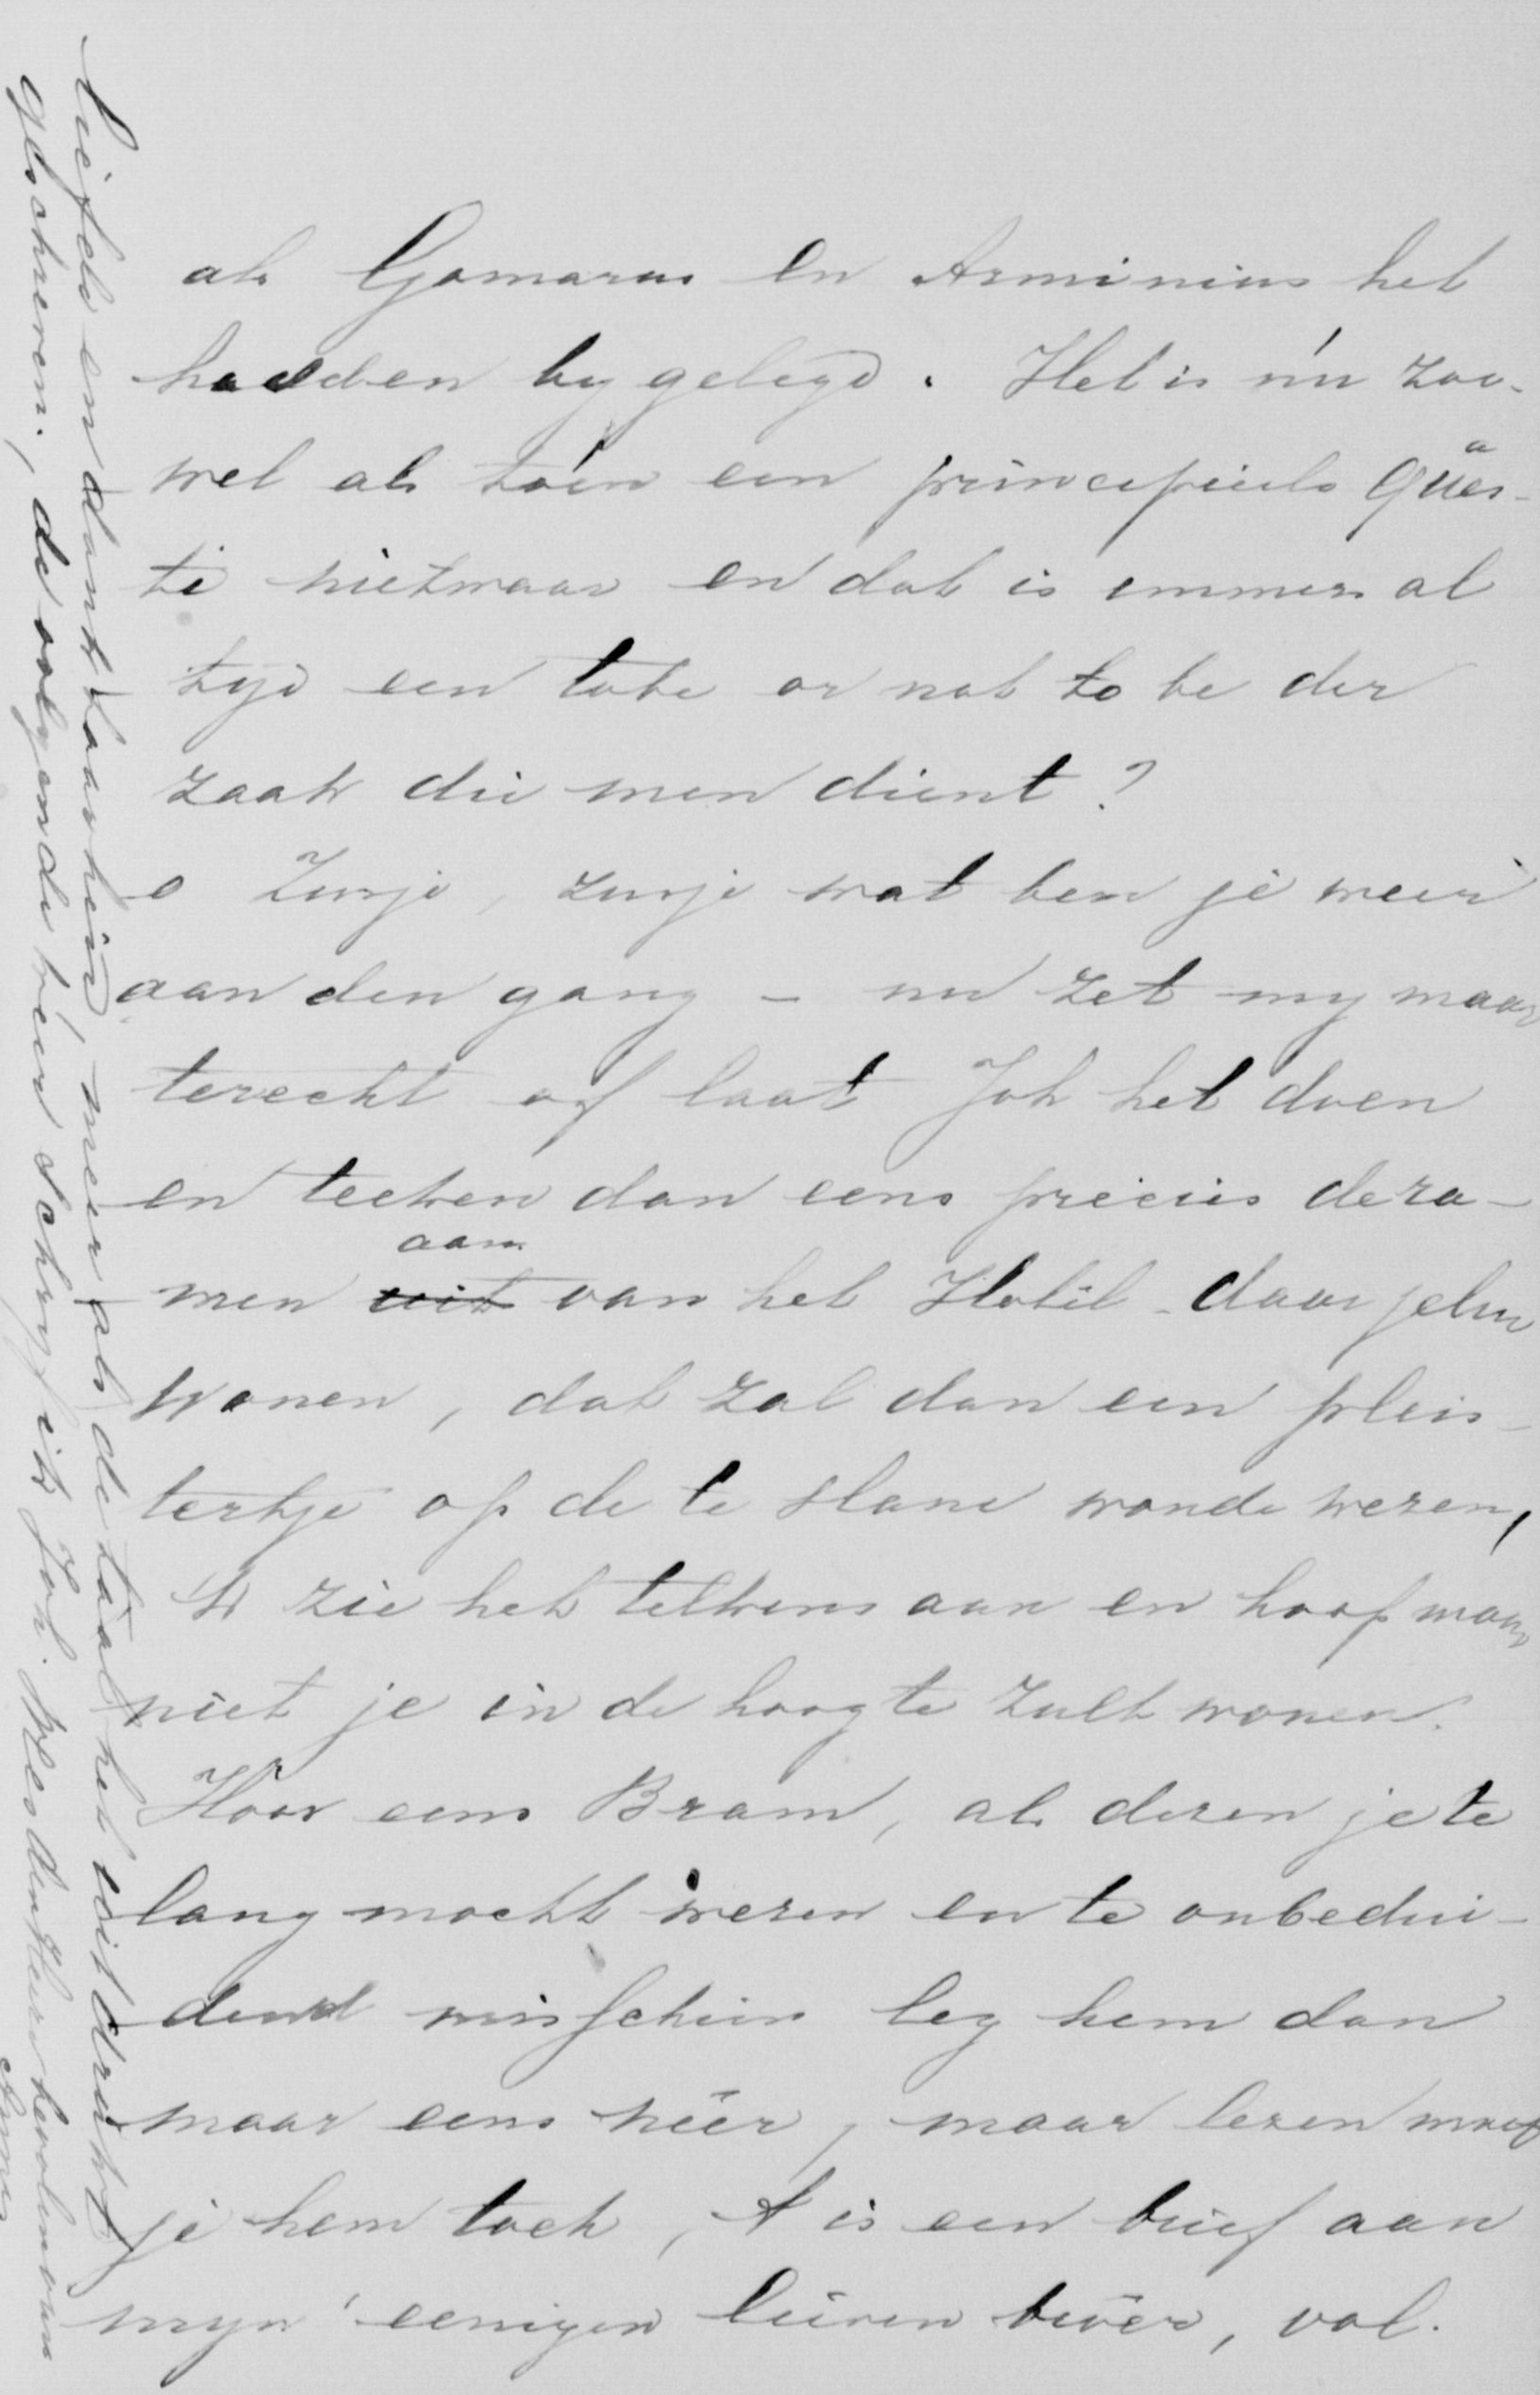 als Gomarus en Arminius het
hadden bygelegd. Het is nú zoo-
wel als tóen een principieele Quaes-
tie nietwaar en dat is immers al
tyd een tobe or not to be der
zaak die men dient?
o Zusje, zusje wat ben je weer
aan den gang – nu zet my maar
terecht of laat Joh het doen
en teeken dan eens precies de ra-
men uit aan van het Hotel daar jelui
wonen, dat zal dan een pleis-
tertje op de te slane wonde wezen,
'k zie het telkens aan en hoop maar
niet je in de hoogte zult wonen.
Hoor eens Bram, als dezen je te
lang mocht wezen en te onbedui-
dend misschien leg hem dan
maar eens néer, maar lezen moet
je hem toch, 't is een brief aan
myn' eenigen lieven broer, vol.
liefde en dankbaarheid, meer als de taal het uitdrukt
geschreven., de volgende keer schryf ik Joh.